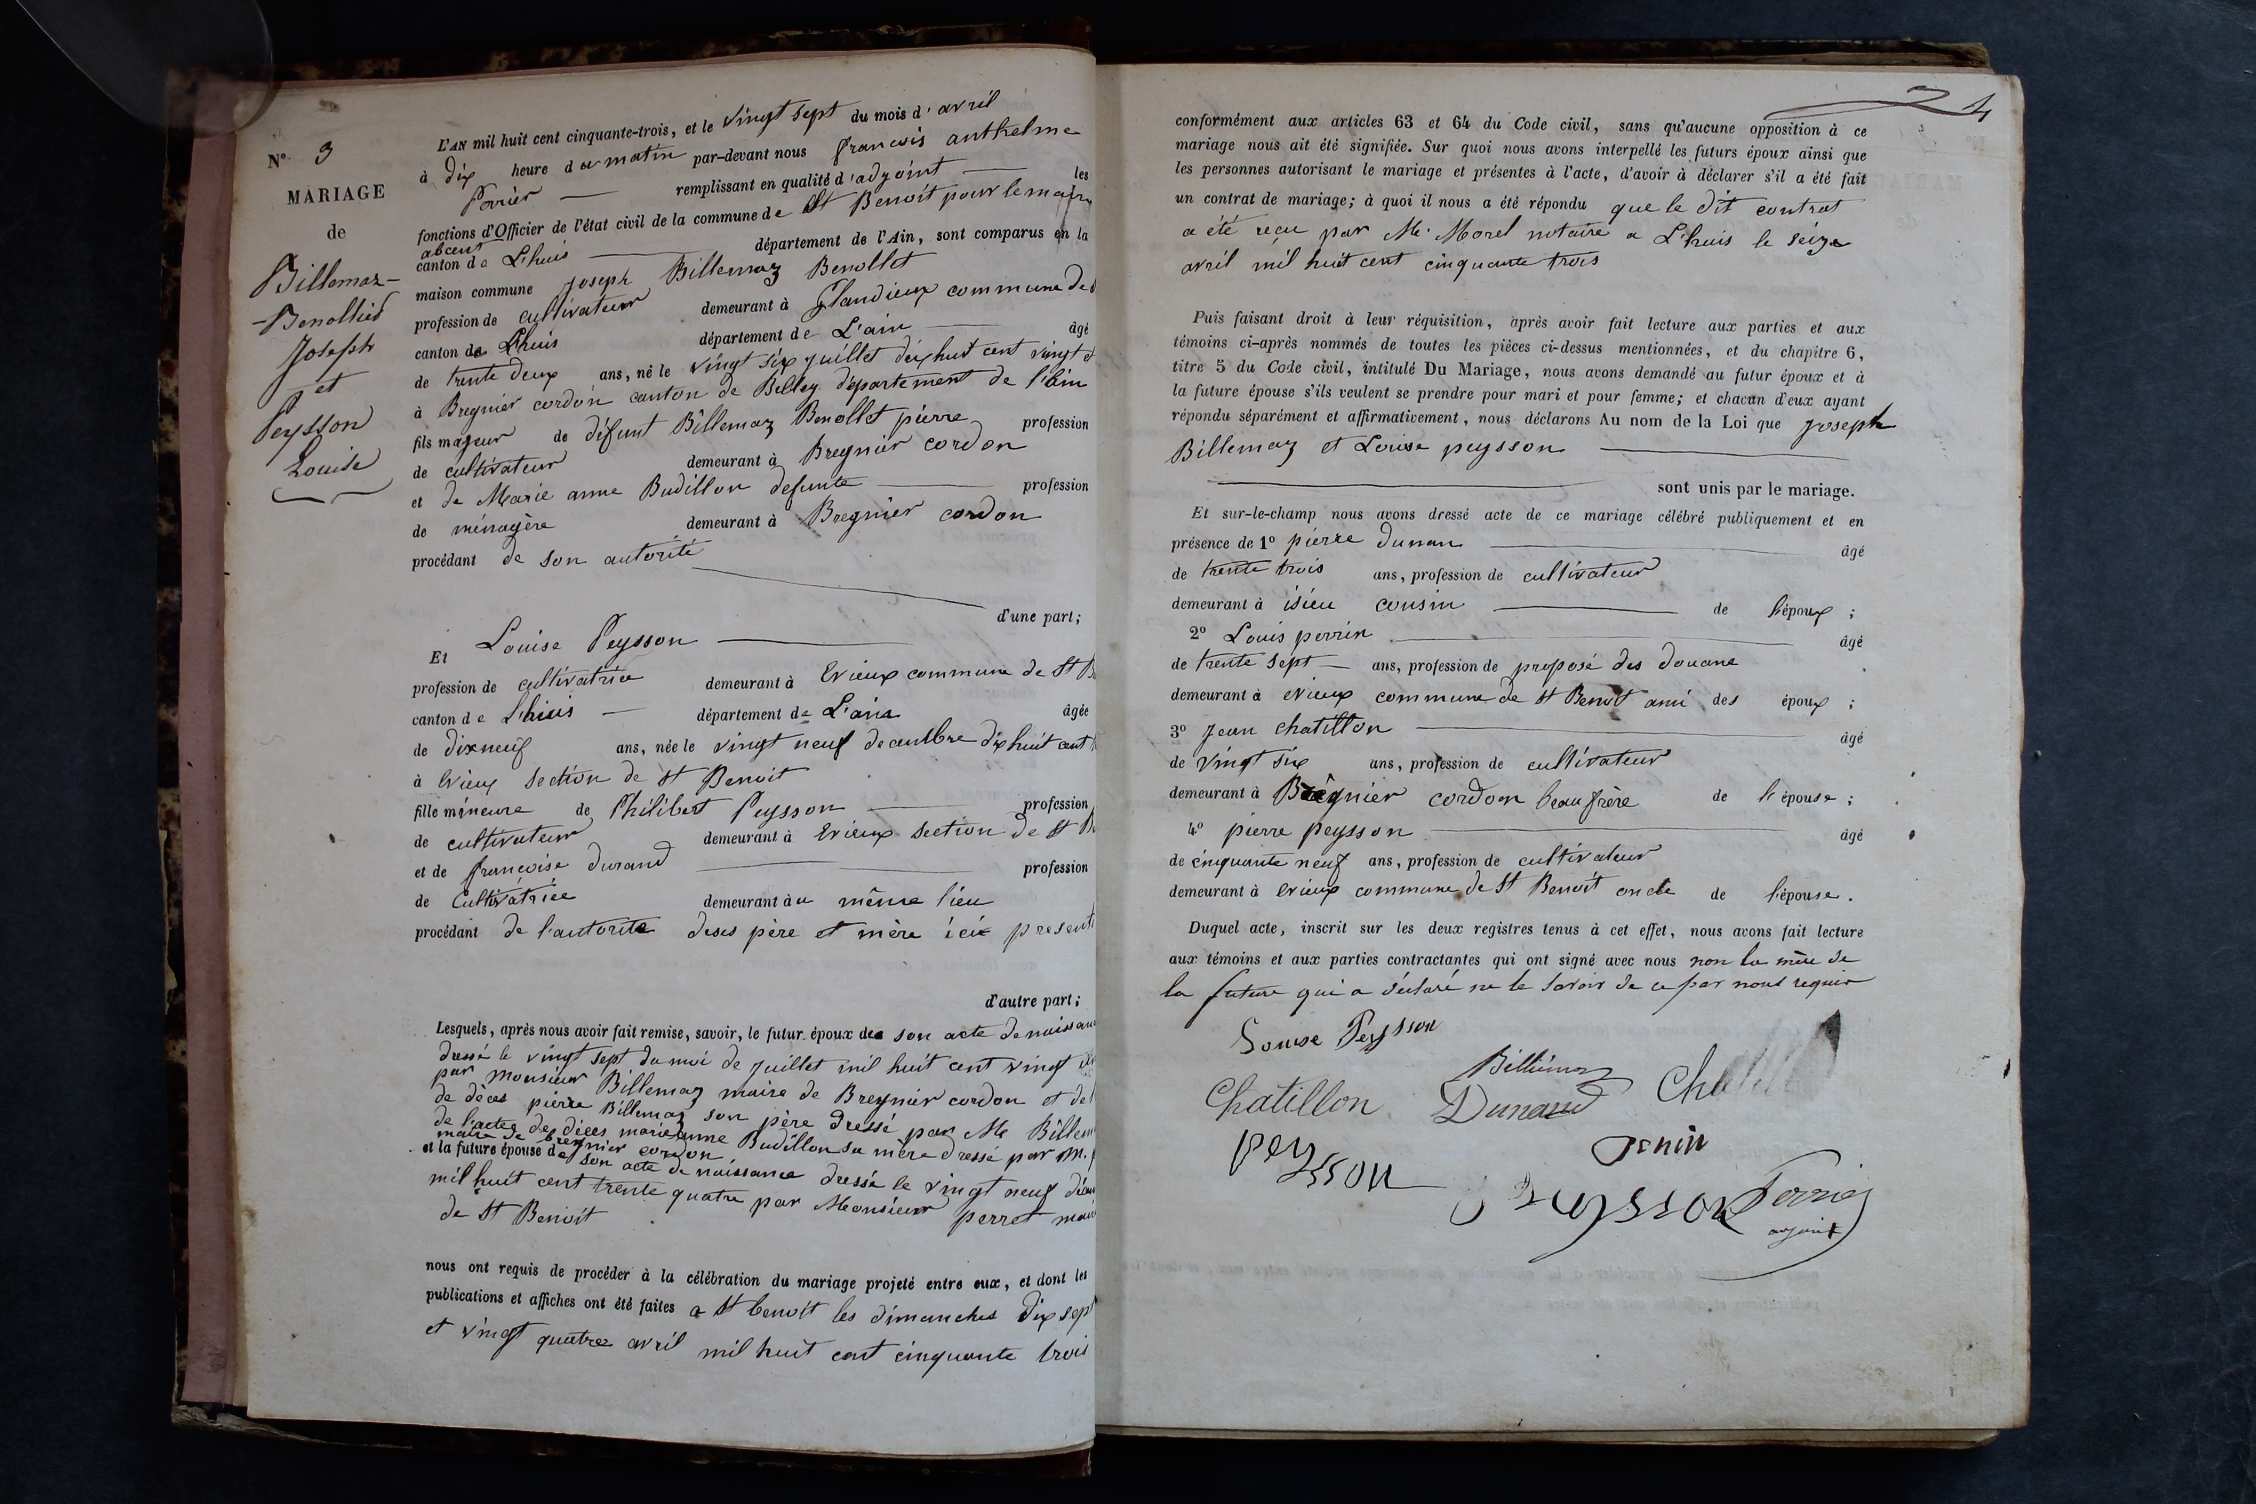 N° 3
MARIAGE
de
Billemaz-
-Benolliet
Joseph
et
Peysson
Louise
L'AN mil huit cent cinquante-trois, et le vingt sept du mois d'avril
à dix heure du matin par-devant nous françois anthelme
Perrier remplissant en qualité d'adjoint les
fonctions d'Officier de l'état civil de la commune de St Benoit pour le maire
abcent
canton de L'huis département de l'Ain, sont comparus en la
maison commune joseph Billemaz Benollet
profession de cultivateur demeurant à Glandieux commune de
canton de L'huis département de L'ain âgé
de trente deux ans, né le vingt six juillet dix huit cent vingt et
à Bregnier cordon canton de Belley département de l'ain
fils majeur de défunt Billemaz Benollet pierre profession
de cultivateur demeurant à Bregnier cordon
et de Marie anne Budillon defunte profession
de ménagère demeurant à Bregnier cordon
procédant de son autorité
d'une part;
Et Louise Peysson
profession de cultivatrice demeurant à Evieux commune de St B
canton de L'huis département de L'ain âgée
de dixneuf ans, née le vingt neuf decembre dix huit cent
à Evieux section de St Benoit
fille mineure de Philibert Peysson profession
de cultivateur demeurant à Evieux section de St B
et de françoise durand profession
de Cultivatrice demeurant au même lieu
procédant de l'autorité deses père et mère ici present
d'autre part;
Lesquels, après nous avoir fait remise, savoir, le futur époux de son acte de naissance
dressé le vingt sept du moi de juillet mil huit cent vingt
par Monsieur Billemaz maire de Bregnier cordon et de l
de décès pierre Billemaz son père dressé par Mr Billem
de l'acte de décès marieanne Budillon sa mère dressé par M.
maire de bregnier cordon
et la future épouse de son acte de naissance dressé le vingt neuf décem
mil huit cent trente quatre par Monsieur perret maire
de St Benoit
nous ont requis de procéder à la célébration du mariage projeté entre eux, et dont les
publications et affiches ont été faites a St benoit les dimanches dix sept
et vingt quatre avril mil huit cent cinquante trois
24
conformément aux articles 63 et 64 du Code civil, sans qu'aucune opposition à ce
mariage nous ait été signifiée. Sur quoi nous avons interpellé les futurs époux ainsi que
les personnes autorisant le mariage et présentes à l'acte, d'avoir à déclarer s'il a été fait
un contrat de mariage; à quoi il nous a été répondu que le dit contrat
a été reçu par Me. Morel notaire a L'huis le seize
avril mil huit cent cinquante trois
Puis faisant droit à leur réquisition, après avoir fait lecture aux parties et aux
témoins ci-après nommés de toutes les pièces ci-dessus mentionnées, et du chapitre 6,
titre 5 du Code civil, intitulé Du Mariage, nous avons demandé au futur époux et à
la future épouse s'ils veulent se prendre pour mari et pour femme; et chacun d'eux ayant
répondu séparément et affirmativement, nous déclarons Au nom de la Loi que joseph
Billemaz et Louise peysson
sont unis par le mariage.
Et sur-le-champ nous avons dressé acte de ce mariage célébré publiquement et en
présence de 1° pierre dunan âgé
de trente trois ans, profession de cultivateur
demeurant à isieu cousin de l'époux ;
2° Louis perrin âgé
de trente sept ans, profession de preposé des douane
demeurant à evieux commune de St Benoit ami des époux ;
3° jean chatillon âgé
de vingt six ans, profession de cultivateur
demeurant à Bregnier cordon beau frère de l'épouse ;
4° pierre peysson âgé
de cinquante neuf ans, profession de cultivateur
demeurant à evieux commune de St Benoit oncle de l'épouse.
Duquel acte, inscrit sur les deux registres tenus à cet effet, nous avons fait lecture
aux témoins et aux parties contractantes qui ont signé avec nous non la mère de
la future qui a déclaré ne le savoir de ce par nous requis
Louise Peysson
Billiémaz
Chatillon Dunand
peysson Genin
peysson Perrier
adjoint